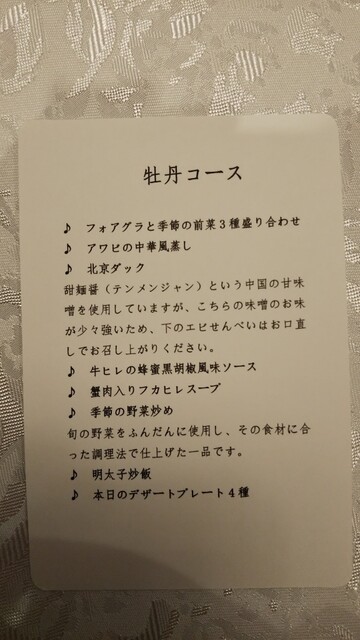 牡丹コース
♪ フォアグラと季節の前菜3種盛り合わせ
♪ アワビの中華風蒸し
♪ 北京ダック
甜麺醤(テンメンジャン)という中国の甘味
噌を使用していますが、こちらの味噌のお味
が少々強いため、下のエビせんべいはお口直
しでお召し上がりください。
♪ 牛ヒレの蜂蜜黒胡椒風味ソース
♪ 蟹肉入りフカヒレスープ
♪ 季節の野菜炒め
旬の野菜をふんだんに使用し、その食材に合
った調理法で仕上げた一品です。
♪ 明太子炒飯
♪ 本日のデザートプレート4種